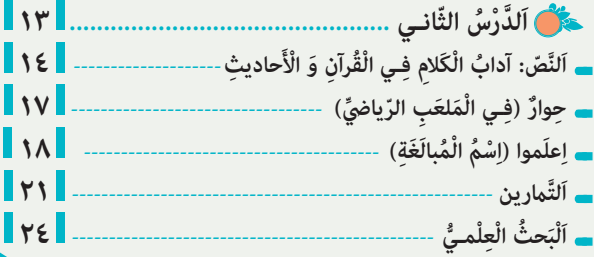 اَلدَّرْسُ الثّانـي ........................................ ١٣
اَلنَّصّ: آدابُ الْكَلامِ فِـي الْقُرآنِ وَ الْأَحاديثِ -------------------- ١٤
حِوارٌ (فِـي الْمَلعَبِ الرّياضيِّ) ---------------------------------- ١٧
اِعلَموا (اِسْمُ الْمُبالَغَةِ) ---------------------------------------- ١٨
اَلتَّمارين ---------------------------------------------------------- ٢١
اَلْبَحثُ الْعِلْمـيُّ -------------------------------------------------- ٢٤